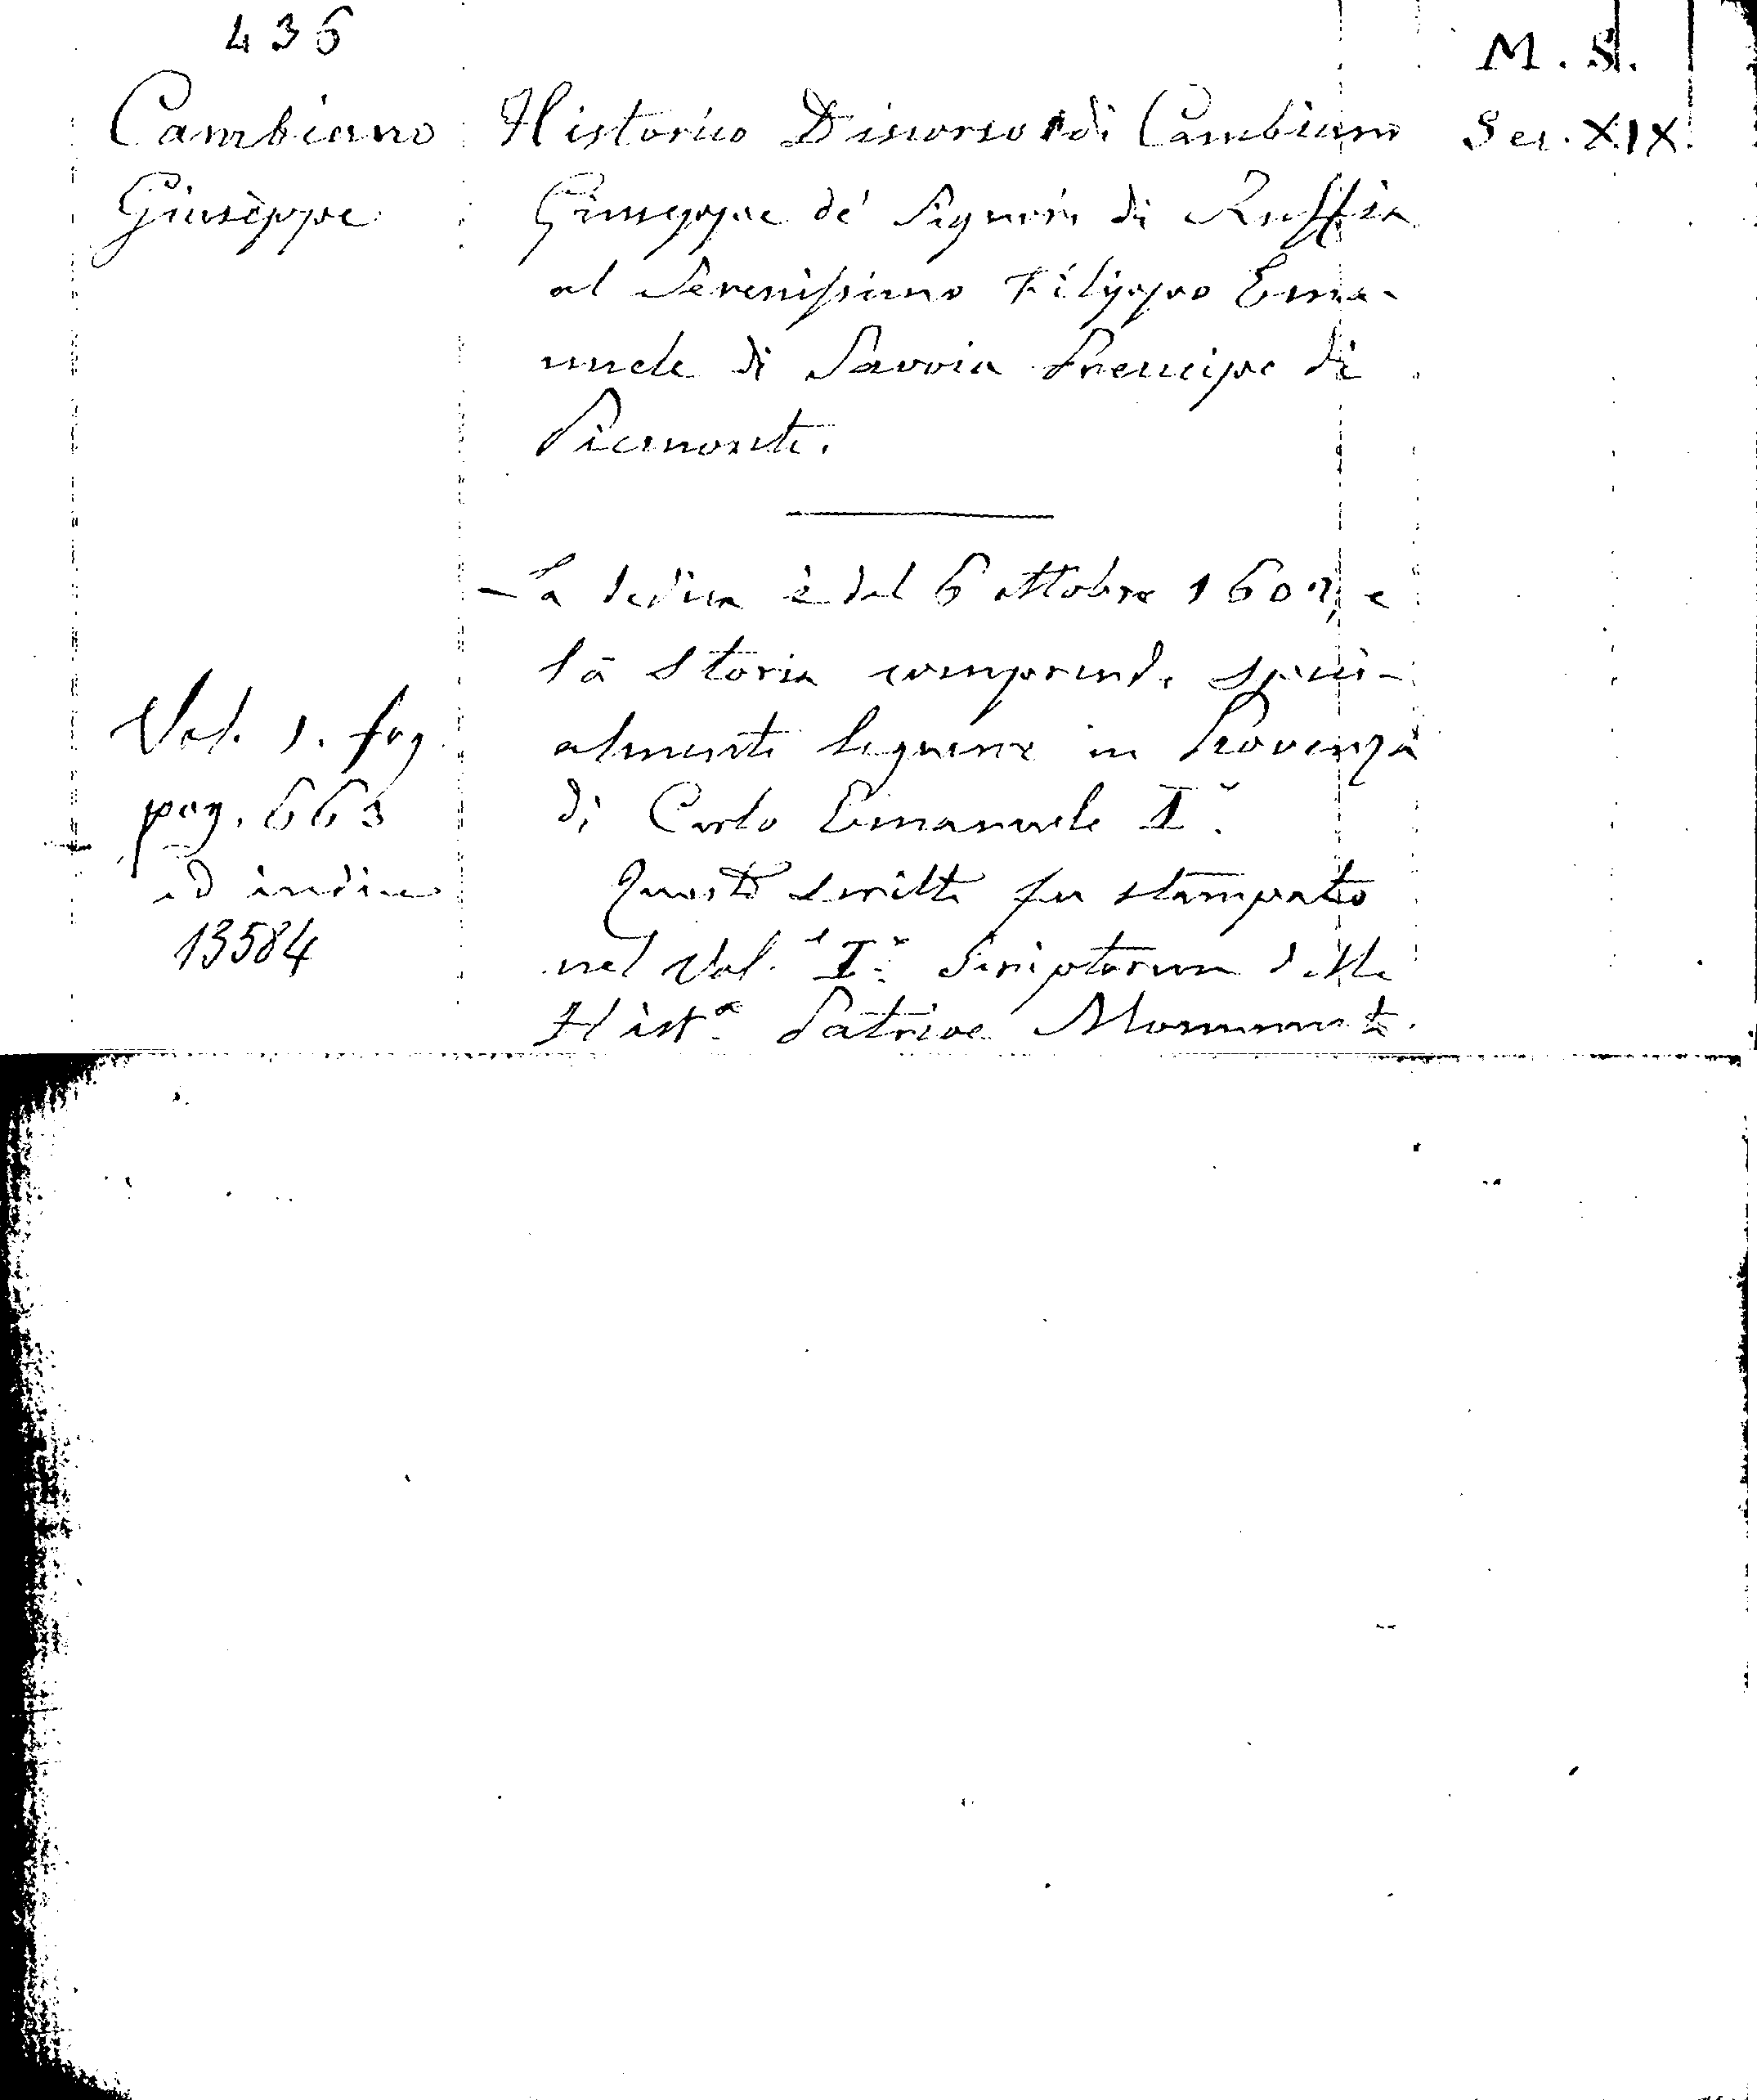 436
M. S.
Cambiano
Giuseppe
Historico Discorso di Cambiano
Giuseppe de' Signori di Ruffia
al Serenissimo Filippo Ema-
nuele di Savoia Prencipe di
Piemonte.
Sec. XIX.
- La dedica è del 6 ottobre 1602, e
la storia comprend. speci-
almente le guerre in Provenza
di Carlo Emanuele I.º
Questo scritto fu stampato
nel Vol. I.º Scriptorum delle
Hist.ᵃ Patriae Monumenta.
Vol. 1. fog.
pag. 663
ed indice
13584